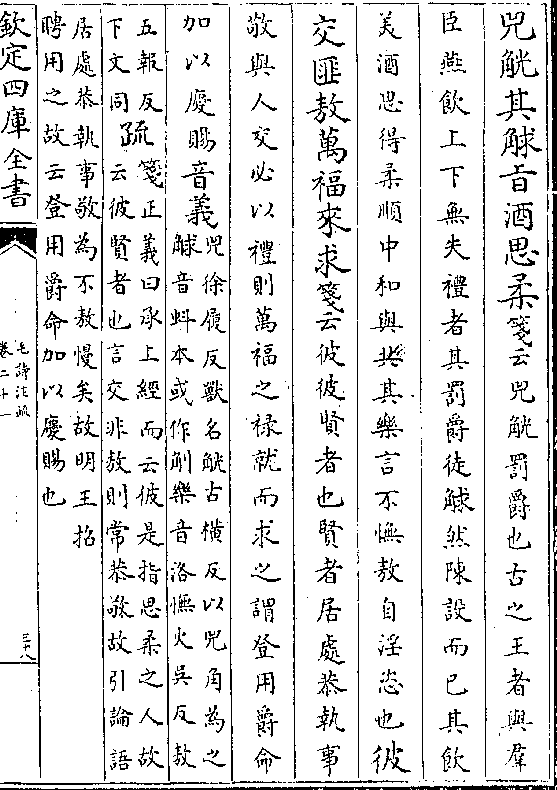 兕觥其觩旨酒思柔箋云兕觥罰爵也古之王者與羣
臣燕飲上下無失禮者其罰爵徒觩然陳設而已其飲
美酒思得柔順中和與共其樂言不憮敖自淫恣也彼
交匪敖萬福來求箋云彼彼賢者也賢者居處恭執事
敬與人交必以禮則萬福之祿就而求之謂登用爵命
加以慶賜音義兕徐履反獸名觥古橫反以兕角為之
觩音虯本或作觓樂音洛憮火吳反敖
五報反下文同疏箋正義曰承上經而云彼是指思柔之人故
云彼賢者也言交非敖則常恭敬故引論語
居處恭執事敬為不敖慢矣故明王招
聘用之故云登用爵命加以慶賜也
欽定四庫全書
毛詩注疏
卷二十一
三十八